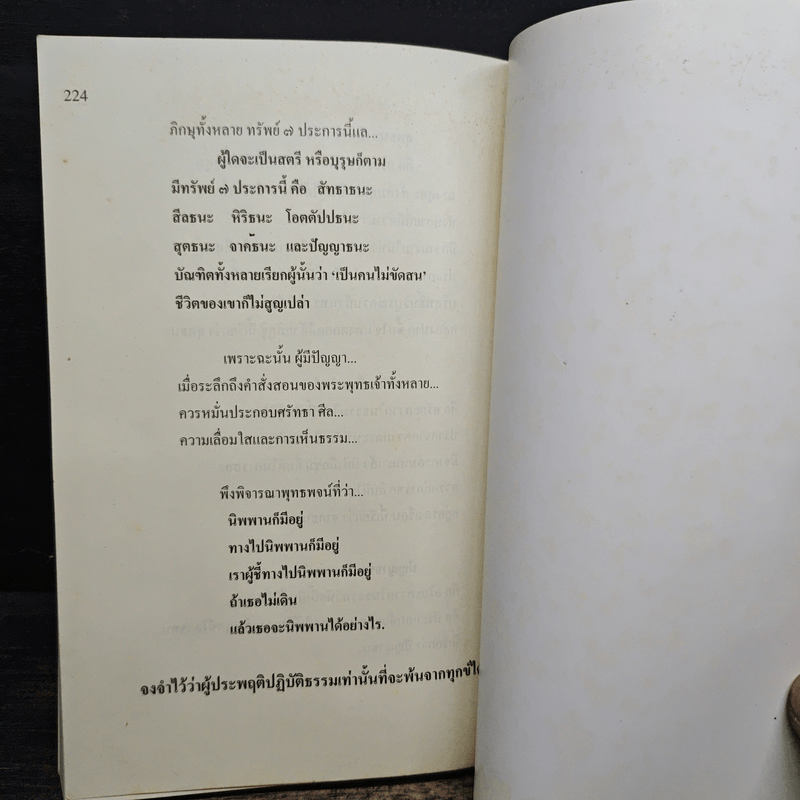 224
ภิกษุทั้งหลาย ทรัพย์ ๗ ประการนี้แล...
ผู้ใดจะเป็นสตรี หรือบุรุษก็ตาม
มีทรัพย์ ๗ ประการนี้ คือ สัทธาธนะ
สีลธนะ หิริธนะ โอตตัปปธนะ
สุตธนะ จาคธนะ และปัญญาธนะ
บัณฑิตทั้งหลายเรียกผู้นั้นว่า ‘เป็นคนไม่ขัดสน’
ชีวิตของเขาก็ไม่สูญเปล่า
เพราะฉะนั้น ผู้มีปัญญา...
เมื่อระลึกถึงคำสั่งสอนของพระพุทธเจ้าทั้งหลาย...
ควรหมั่นประกอบศรัทธา ศีล...
ความเลื่อมใสและการเห็นธรรม...
พึงพิจารณาพุทธพจน์ที่ว่า...
นิพพานก็มีอยู่
ทางไปนิพพานก็มีอยู่
เราผู้ชี้ทางไปนิพพานก็มีอยู่
ถ้าเธอไม่เดิน
แล้วเธอจะนิพพานได้อย่างไร.
จงจำไว้ว่าผู้ประพฤติปฏิบัติธรรมเท่านั้นที่จะพ้นจากทุกข์ได้